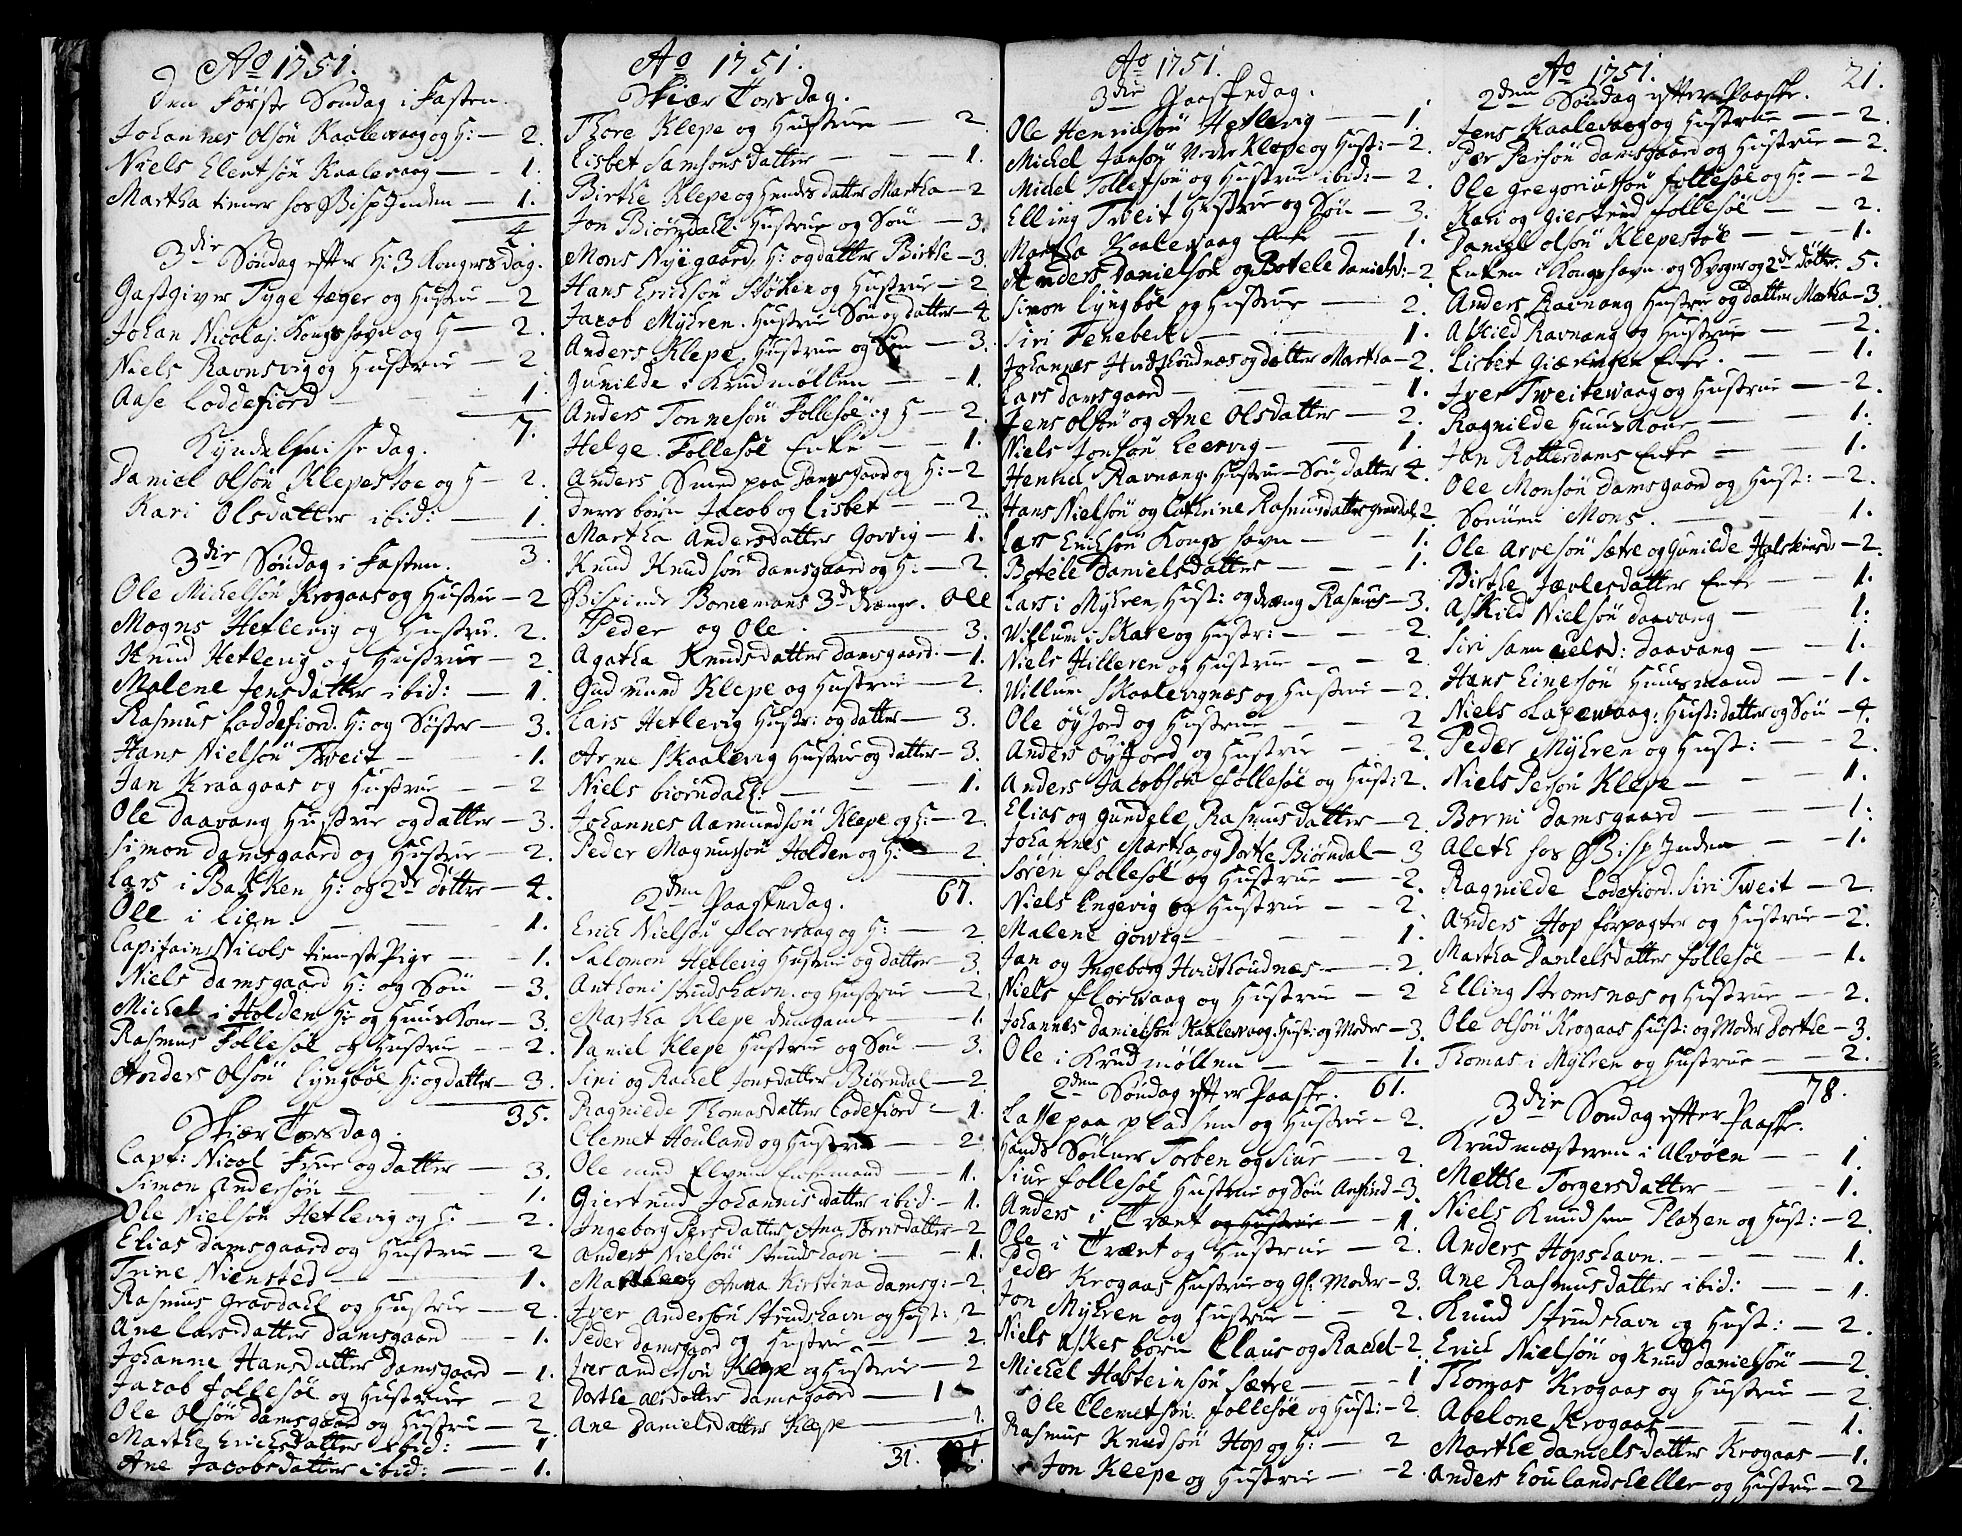 Ao 1751.
den Første Søndag i Fasten.
Johannes Olsön Kaalevaag og H: — 2.
Niels Elentsön Kaalevaag — 1.
Martha tiener hos Bisp Inden — 1.
4
3die Søndag efter H: 3 Kongersdag.
Gastgiver Tyge Jæger og Hustru — 2
Johan Nicolaj Kongshavn og H — 2.
Niels Ravnsvig og Hustrue — 2
Aase Loddefiord — 1.
7.
Kyndelmissedag.
Daniel Olsön Klepestøe og H — 2.
Kari Olsdatter ibid: — 1.
3.
3die Søndag i Fasten.
Ole Michelsön Krogaas og Hustrue — 2
Mogns Hetlevig og Hustru. 2.
Knud Hetlevig og Hustrue — 2.
Malene Jensdatter ibid: — 1.
Rasmus Loddefiord. H: og Søster — 3.
Hans Nielsön Tveit — 1.
Jan Kraagaas og Hustrue — 2
Ole Daavang Hustrue og datter — 3.
Simon Damsgaard og Hustrue — 2.
Lars i Bakken H: og 2de döttre — 4.
Ole i Lien. — 1.
Capitain Nicols tienste Pige — 1.
Niels Damsgaard H: og Sön — 3.
Michel i Holden H: og Huuskone — 3.
Rasmus Follesöe og Hustru — 2.
Anders Olsön Lyngböe H: og datter — 3.
35.
Skiær Torsdag.
Capt: Nicol Frue og datter — 3.
Simon Andersön — 1.
Ole Nielsön Hetlevig og H: — 2.
Elias Damsgaard og Hustrue — 2
Trine Niensted — 1.
Rasmus Gravdahl og Hustrue — 2.
Ane Larsdatter Damsgaard — 1.
Johanne Hansdatter Damsgaard — 1.
Jacob Follesöe og Hustrue — 2
Ole Olsön Damsgaard og Hustru — 2.
Marthe Erichsdatter ibid: — 1.
Ane Jacobsdatter ibid: — 1.
Ao 1751.
Skiær Torsdag.
Thore Klepe og Hustrue — 2.
Lisbet Samsonsdatter — 1.
Birthe Klepe og Hendes datter Martha — 2
Jon Biörndahl Hustrue og Sön — 3.
Mons Nyegaard, H: og datter Birthe — 3.
Hans Erichsön Stöken og Hustrue — 2
Jacob Myhren. Hustrue Sön og datter — 4.
Anders Klepe, Hustrue og Sön — 3.
Gunilde i Krudmøllen — 1.
Anders Tonnesön Follesöe og H — 2.
Helge Follesöe Enke — 1.
Anders Smed paa Damsgaard og H: — 2
Deres börn Jacob og Lisbet — 2.
Martha Andersdatter Govvig — 1.
Knud Knudsön Damsgaard og H: — 2.
Bispinde Bornemans 3de drænge. Ole
Peder og Ole. 3.
Agatha Knudsdatter Damsgaard: — 1.
Gudmund Klepe og Hustrue — 2.
Lars Hetlevig Hustr: og datter — 3.
Arne Skaalevig Hustrue og datter — 3.
Niels biörndahl: — 1.
Johannes Aamundsön Klepe og H: — 2.
Peder Magnussön Holden og H: — 2.
67.
2den Paaskedag.
Erich Nielsön Florvaag og H: — 2.
Salomon Hetlevig Hustrue og datter — 3.
Anthoni Strudshavn. og Hustrue — 2.
Martha Klepe den gamle — 1.
Daniel Klepe Hustrue og Sön — 3.
Sini og Rachel Jonsdatter Biörndal — 2
Ragnilde Thomasdatter Lodefiord — 1.
Clemet Houland og Hustrue — 2.
Ole med Elven Enkemand — 1.
Giertrud Johannisdatter ibid — 1.
Ingeborg Persdatter, Ane Iversdatter — 2
Anders Nielsön Strudshavn — 1.
Marthe og Anna Kirstina Damsg: — 2.
Iver Andersön Strudshavn og Hust: 2
Peder Damsgaard og Hustrue — 2.
Iver Andersön Klepe og Hustrue — 2
Dorthe Alisdatter Damsgaard — 1
Ane Danielsdatter Klepe — 1.
31.
Ao 1751.
3die Paaskedag.
Ole Henrichsön Hetlevig — 1.
Michel Jansön Nedre Klepe og Hust: — 2.
Michel Tollefsön og Hustrue ibid: — 2.
Elling Tveit Hustrue og Sön — 3.
Martha Kaalevaag Enke — 1.
Anders Danielsön og Botele Danielsd: — 2
Simon Lyngböe og Hustrue — 2.
Siri Fenebeck — 1.
Johannes Hvidskudnæs og datter Martha — 2.
Lars Damsgaard — 1.
Jens Olsön og Ane Olsdatter — 2.
Niels Jonsön Leervig — 1.
Henrich Ravnang. Hustrue — Sön datter 4.
Hans Nielsön og Cathrine Rasmusdatter Gravdal 2
Lars Erichsön Kongshavn — 1.
Botele Danielsdatter — 1.
Lars i Myhren, Hust: og dræng Rasmus — 3.
Willum i Skare og Hustr: — 2.
Niels Hilleren og Hustrue — 2
Willum Skaalevignæs og Hustrue — 2.
Ole Öyjord og Hustrue — 2
Anders Öyjord og Hustrue — 2.
Anders Jacobsön Follesöe og Hust: 2.
Elias og Gundele Rasmusdatter — 2.
Johannes Martha og Dorthe Biörndal — 3
Sören Follesöe og Hustrue — 2.
Niels Engevig og Hustrue — 2.
Malene Govvig — 1.
Jan og Ingeborg Hvidskoudnæs — 2.
Niels Florvaag og Hustrue — 2
Johannes Danielsön Kaalevaag, Hust: og Moder — 3.
Ole i Krudmøllen — 1.
61.
2den Søndag efter Paaske.
Lasse paa pladsen og Hustrue — 2.
Hands Sönner Torben og Siur — 2.
Siur Follesöe Hustrue og Sön Anfind — 3.
Anders i Trænt og Hustrue — 1.
Ole i Trænt og Hustrue — 2.
Peder Krogaas Hustrue og Gl: Moder — 3.
Jon Myhren og Hustrue — 2.
Niels Askes börn Claus og Rachel — 2.
Michel Halsteinsön Sætre — 1
Ole Clemetsön Follesöe og Hust: — 2.
Rasmus Knudsön Hop og H: — 2
Jon Klepe og Hustrue — 2.
Ao 1751.
21.
2den Søndag efter Paaske.
Jens Kaalevaag og Hustrue — 2.
Peer Persön Damsgaard og Hustrue — 2.
Ole Gregoriussön Follesöe og H: — 2
Kari og Giertrud Follesöe — 2.
Daniel Olsön Klepestöe — 1.
Enken i Kongshavn og Svoger og 2de döttre. 5.
Anders Ravnang Hustrue og datter Martha — 3.
Askild Ravnang og Hustrue — 2.
Lisbet Giæringer Enke — 1.
Iver Tweitewaag og Hustrue — 2.
Ragnilde Huuskone — 1.
Jan Rotterdams Enke — 1.
Ole Monsön Damsgaard og Hust: — 2.
Sonnen Mons. — 1.
Ole Arvesön Sætre og Gunilde — 2.
Birthe Jærlesdatter Enke — 1.
Askild Nielsön Daavang — 1.
Siri Samuelsd: Daavang — 1.
Hans Einersön Huusmand — 1.
Niels Lapewaag: Hust: datter og Sön — 4.
Peder Myhren og Hust: — 2.
Niels Persön Klepe — 1.
Borni Damsgaard — 1.
Aleth hos Bisp Inden — 1.
Ragnilde Lodefiord. Siri Tweit — 2.
Anders Hop forpagter og Hustrue — 2.
Martha Danielsdatter Follesöe — 1.
Elling Stromsnæs og Hustrue — 2.
Ole Olsön Krogaas Hust: og Moder Dorthe — 3.
Thomas i Myhren og Hustrue — 2.
78.
3die Søndag efter Paaske.
Krudmæsteren i Alvöen — 1.
Methe Torgersdatter — 1.
Niels Knudsen Platzen og Hust: — 2
Anders Hopshavn. — 1.
Ane Rasmusdatter ibid: — 1.
Knud Strudshavn og Hust: — 2.
Erich Nielsön og Knud Danielsön — 2
Thomas Krogaas og Hustrue — 2.
Abelone Krogaas — 1.
Marthe Danielsdatter Krogaas — 1.
Anders Loulandskeller og Hustrue — 2